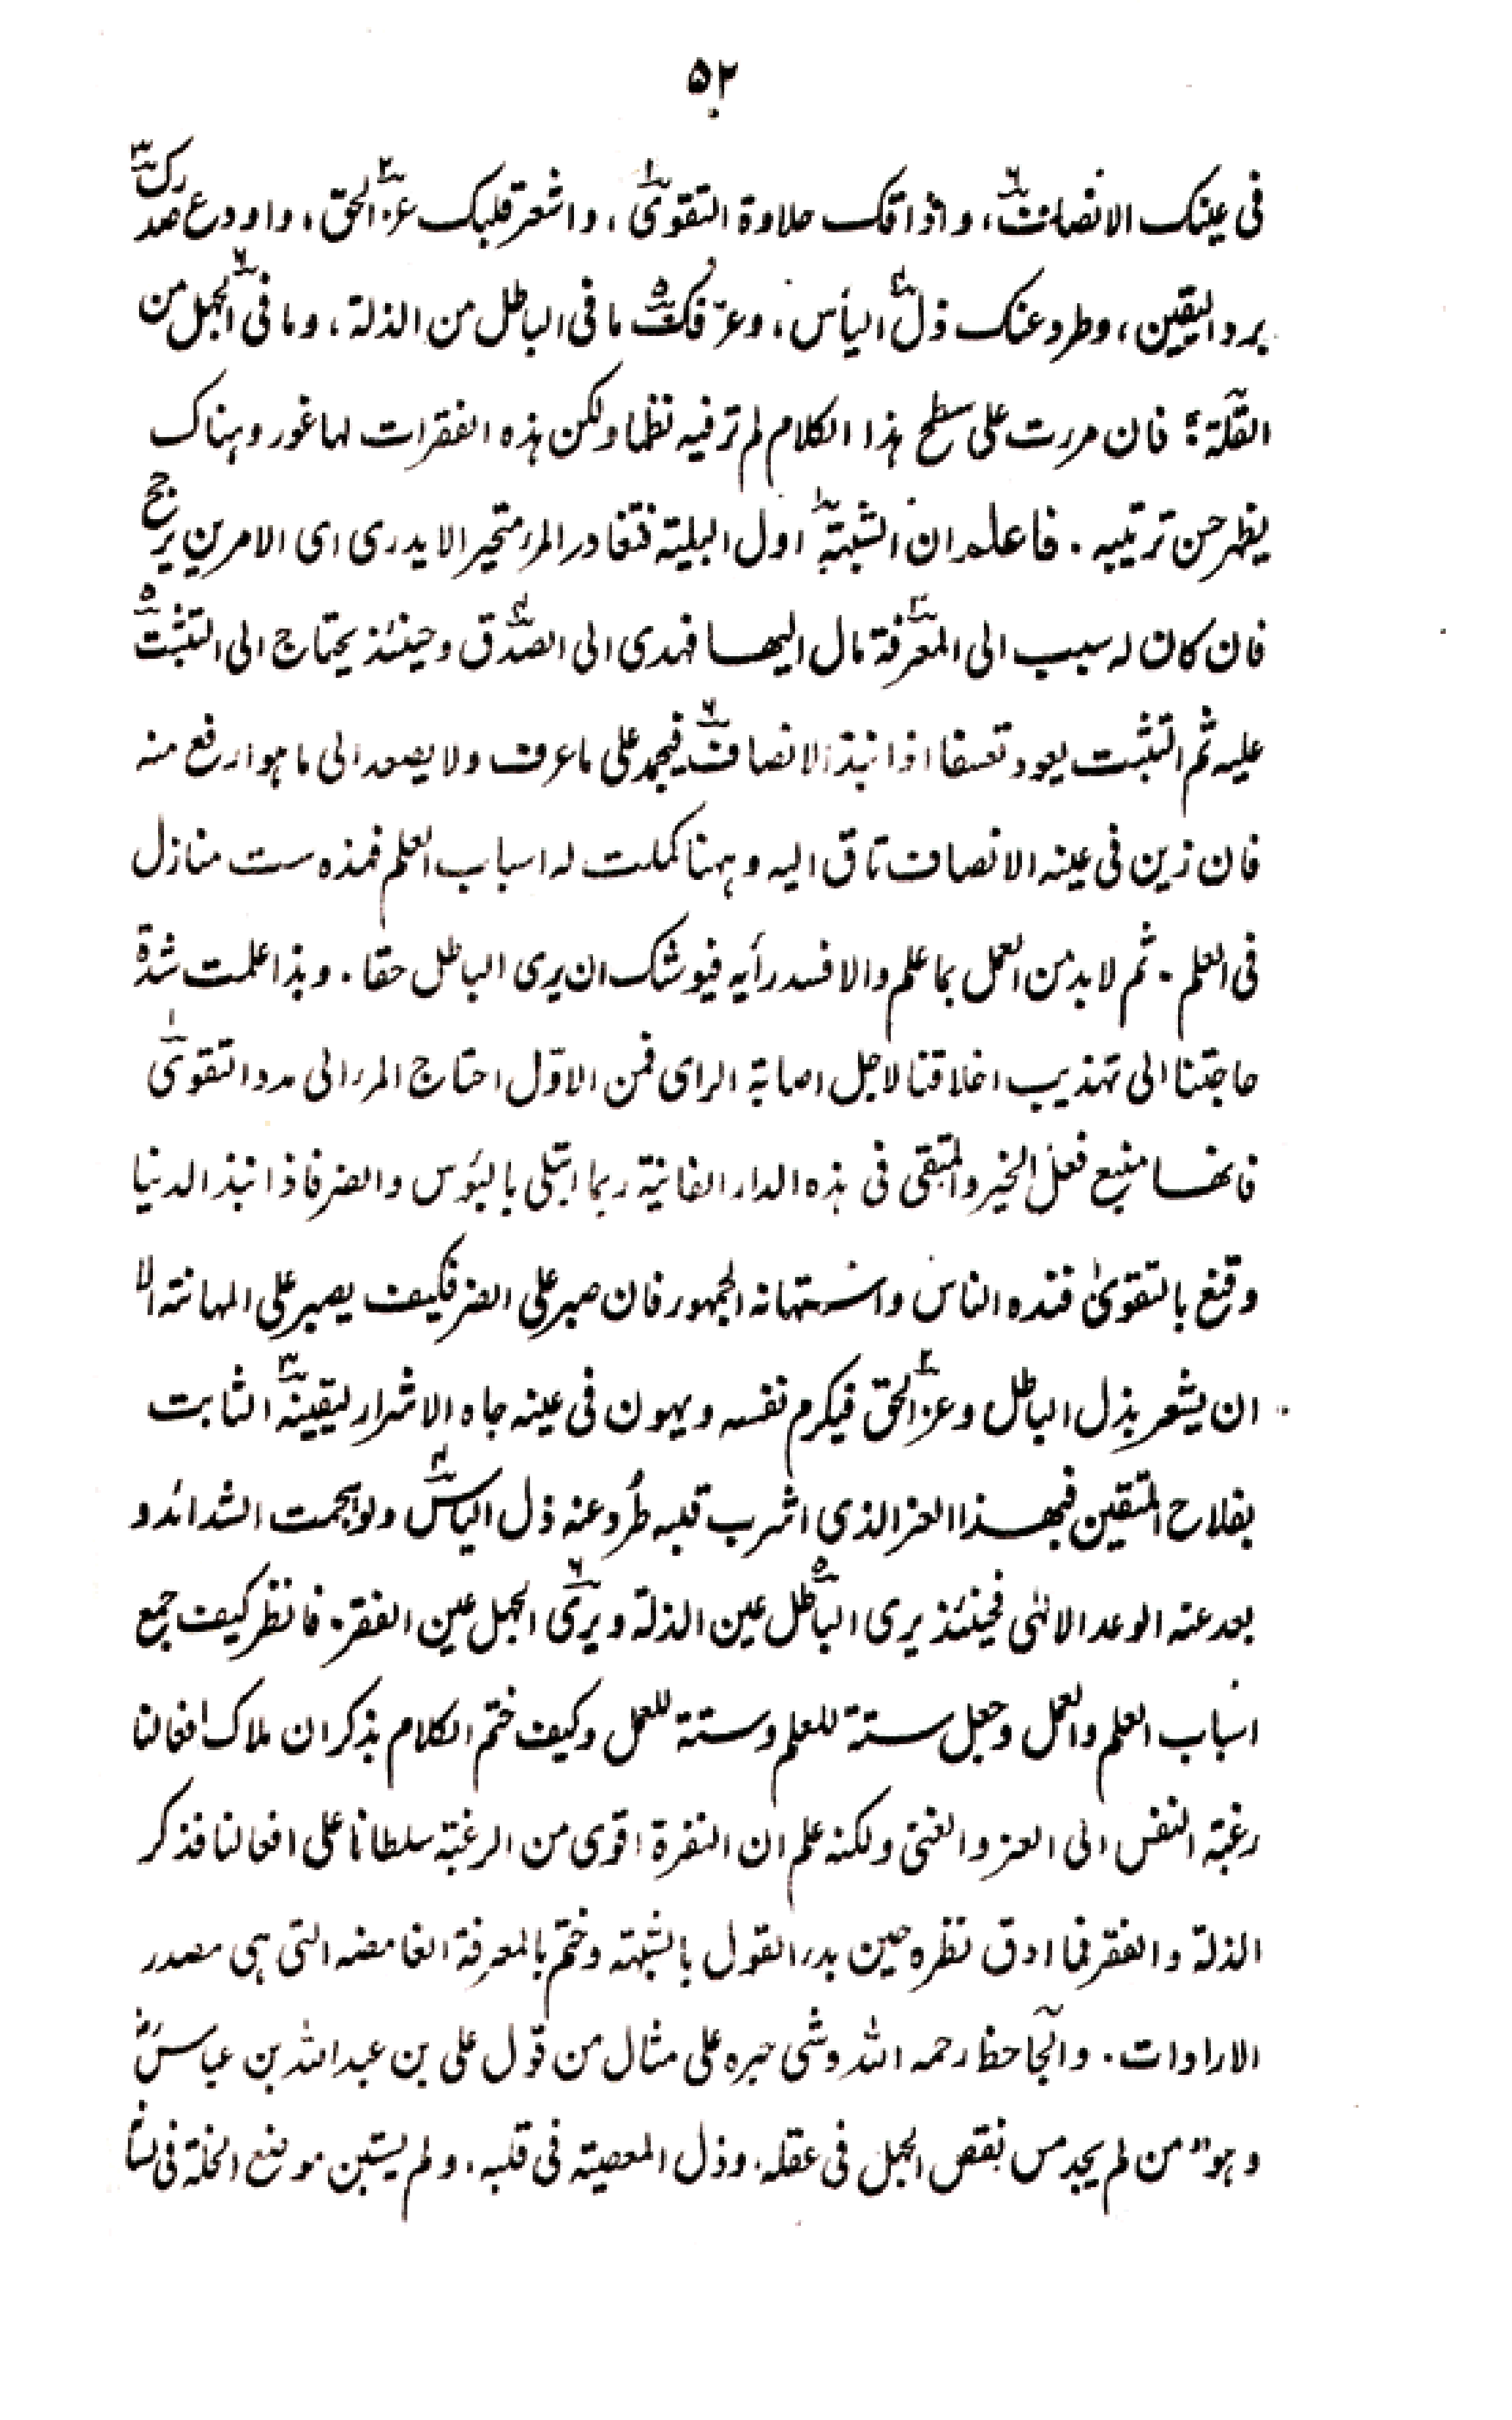 ۵۲
فی عینک الانصاف۶، واذاقک حلاوة التقویٰ۱، واشعر قلبک عز۲ الحق، واودع صدرک۳
برد الیقین، وطرد عنک ذل۴ الیأس، وعرّفک۵ ما فی الباطل من الذلة، وما فی۶ الجهل من
القلّة؛ فان مررت علی سطح هذا الکلام لم تر فیه نظما ولکن هذه الفقرات لها غور وهناک
یظهر حسن ترتیبه. فاعلم ان الشبهة۱ اول البلیة فتغادر المرء متحیرا لا یدری ای الامرین یرجح
فان کان له سبب الی المعرفة۲ مال الیها فهدی الی الصدق۴ وحینئذ یحتاج الی التثبت۵
علیه ثم التثبت یعود تعسفا اذا نبذ الانصاف۶ فیجمد علی ما عرف ولا یصعد الی ما هو ارفع منه
فان زین فی عینه الانصاف تاق الیه وهنا کملت له اسباب العلم فهذه ست منازل
فی العلم. ثم لا بد من العمل بما علم والا فسد رأیه فیوشک ان یری الباطل حقا. وبذا علمت شدة
حاجتنا الی تهذیب اخلاقنا لاجل اصابة الرای فمن الاوّل احتاج المرء الی مدد التقویٰ۱
فانها منبع فعل الخیر والمتقی فی هذه الدار الفانیة ربما ابتلی بالبؤس والضر فاذا نبذ الدنیا
وقنع بالتقویٰ فنده الناس واستهانه الجمهور فان صبر علی الضر فکیف یصبر علی المهانة الا
ان یشعر بذل الباطل وعز۲ الحق فیکرم نفسه ویهون فی عینه جاه الاشرار لیقینه۳ الثابت
بفلاح المتقین فبهذا العز الذی اشرب قلبه طُرد عنه ذل الیاس۴ ولو هجمت الشدائد و
بعد عنه الوعد الالهی فحینئذ یری الباطل۵ عین الذلة ویری۶ الجهل عین الفقر. فانظر کیف جمع
اسباب العلم والعمل وجعل ستة للعلم وستة للعمل وکیف ختم الکلام بذکر ان ملاک افعالنا
رغبة النفس الی العز والغنی ولکنه علم ان النفرة اقوی من الرغبة سلطانا علی افعالنا فذکر
الذلة والفقر فما ادق نظره حین بدء القول بالشبهة وختم بالمعرفة الغامضه التی هی مصدر
الارادات. والجاحظ رحمه الله وشی حبره علی مثال من قول علی بن عبد الله بن عباسؓ
وهو "من لم یجد مس نقص الجهل فی عقله. وذل المعصیة فی قلبه. ولم یستبن موضع الخلة فی لسا